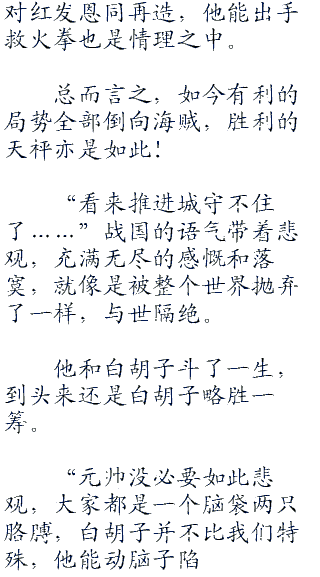 对红发恩同再造，他能出手
救火拳也是情理之中。
总而言之，如今有利的
局势全部倒向海贼，胜利的
天秤亦是如此！
“看来推进城守不住
了……”战国的语气带着悲
观，充满无尽的感慨和落
寞，就像是被整个世界抛弃
了一样，与世隔绝。
他和白胡子斗了一生，
到头来还是白胡子略胜一
筹。
“元帅没必要如此悲
观，大家都是一个脑袋两只
胳膊，白胡子并不比我们特
殊，他能动脑子陷